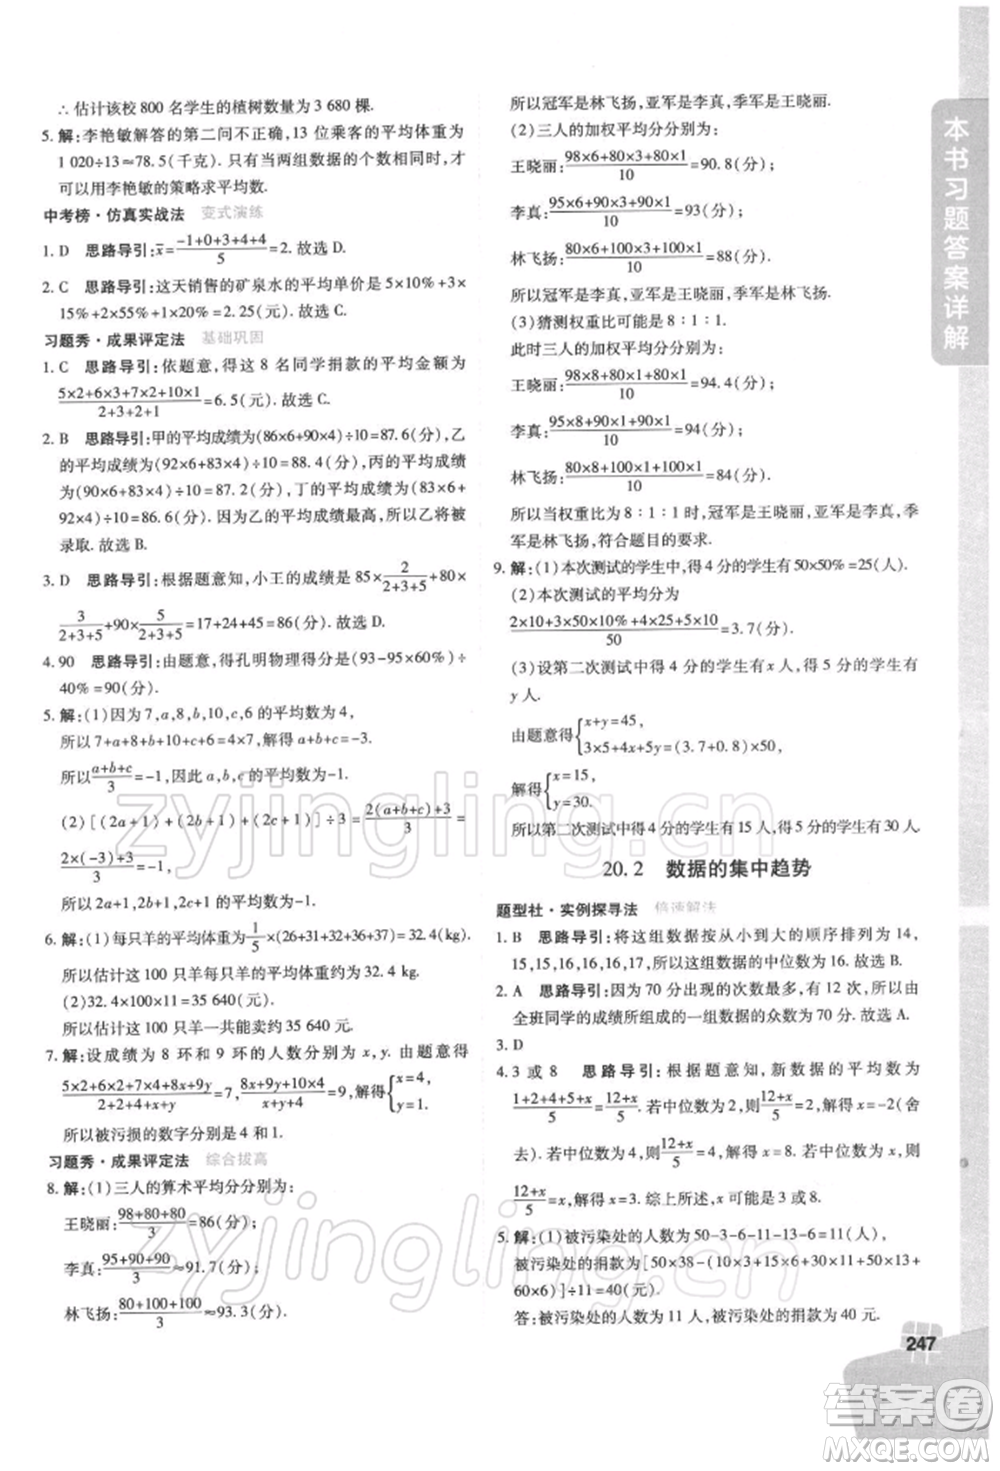 ∴ 估计该校 800 名学生的植树数量为 3 680 棵.
5. 解:李艳敏解答的第二问不正确,13 位乘客的平均体重为
1 020÷13≈78.5(千克). 只有当两组数据的个数相同时,才
可以用李艳敏的策略求平均数.
中考榜·仿真实战法 变式演练
1. D 思路导引:x̄=(−1+0+3+4+4)/5=2. 故选 D.
2. C 思路导引:这天销售的矿泉水的平均单价是 5×10%+3×
15%+2×55%+1×20%=2.25(元). 故选 C.
习题秀·成果评定法 基础巩固
1. C 思路导引:依题意,得这 8 名同学捐款的平均金额为
(5×2+6×3+7×2+10×1)/(2+3+2+1)=6.5(元). 故选 C.
2. B 思路导引:甲的平均成绩为(86×6+90×4)÷10=87.6(分),乙
的平均成绩为(92×6+83×4)÷10=88.4(分),丙的平均成绩
为(90×6+83×4)÷10=87.2(分),丁的平均成绩为(83×6+
92×4)÷10=86.6(分). 因为乙的平均成绩最高,所以乙将被
录取. 故选 B.
3. D 思路导引:根据题意知,小王的成绩是 85×2/(2+3+5)+80×
3/(2+3+5)+90×5/(2+3+5)=17+24+45=86(分). 故选 D.
4. 90 思路导引:由题意,得孔明物理得分为(93-95×60%)÷
40%=90(分).
5. 解:(1)因为 7,a,8,b,10,c,6 的平均数为 4,
所以 7+a+8+b+10+c+6=4×7,解得 a+b+c=-3.
所以(a+b+c)/3=-1,因此 a,b,c 的平均数为-1.
(2)[(2a+1)+(2b+1)+(2c+1)]÷3=(2(a+b+c)+3)/3=
(2×(-3)+3)/3=-1,
所以 2a+1,2b+1,2c+1 的平均数为-1.
6. 解:(1)每只羊的平均体重为1/5×(26+31+32+36+37)=32.4(kg).
所以估计这 100 只羊每只羊的平均体重约为 32.4 kg.
(2)32.4×100×11=35 640(元).
所以估计这 100 只羊一共能卖约 35 640 元.
7. 解:设成绩为 8 环和 9 环的人数分别为 x,y. 由题意得
(5×2+6×2+7×4+8x+9y)/(2+2+4+x+y)=7,(8x+9y+10×4)/(x+y+4)=9,解得{x=4,
y=1.
所以被污损的数字分别是 4 和 1.
习题秀·成果评定法 综合拔高
8. 解:(1)三人的算术平均分分别为:
王晓丽:(98+80+80)/3=86(分),
李真:(95+90+90)/3≈91.7(分),
林飞扬:(80+100+100)/3≈93.3(分).
所以冠军是林飞扬,亚军是李真,季军是王晓丽.
(2)三人的加权平均分分别为:
王晓丽:(98×6+80×3+80×1)/10=90.8(分),
李真:(95×6+90×3+90×1)/10=93(分),
林飞扬:(80×6+100×3+100×1)/10=88(分).
所以冠军是李真,亚军是王晓丽,季军是林飞扬.
(3)猜测权重比可能是 8∶1∶1.
此时三人的加权平均分分别为:
王晓丽:(98×8+80×1+80×1)/10=94.4(分),
李真:(95×8+90×1+90×1)/10=94(分),
林飞扬:(80×8+100×1+100×1)/10=84(分).
所以当权重比为 8∶1∶1 时,冠军是王晓丽,亚军是李真,季
军是林飞扬,符合题目的要求.
9. 解:(1)本次测试的学生中,得 4 分的学生有 50×50%=25(人).
(2)本次测试的平均分为
(2×10+3×50×10%+4×25+5×10)/50=3.7(分).
(3)设第二次测试中得 4 分的学生有 x 人,得 5 分的学生有
y 人.
由题意得{x+y=45,
3×5+4x+5y=(3.7+0.8)×50,
解得{x=15,
y=30.
所以第二次测试中得 4 分的学生有 15 人,得 5 分的学生有 30 人.
20.2 数据的集中趋势
题型社·实例探寻法 倍速解法
1. B 思路导引:将这组数据按从小到大的顺序排列为 14,
15,15,16,17,18,20,所以这组数据的中位数为 16. 故选 B.
2. A 思路导引:因为 70 分出现的次数最多,有 12 次,所以
全班同学的成绩所组成的一组数据的众数为 70分. 故选 A.
3. D
4. 3 或 8 思路导引:根据题意知,新数据的平均数为
(1+2+4+5+x)/5=(12+x)/5. 若中位数为 2,则(12+x)/5=2,解得 x=-2(舍
去). 若中位数为 x,则(12+x)/5=x,解得 x=3. 若中位数为 4,则
(12+x)/5=4,解得 x=8. 综上所述,x 可能是 3 或 8.
5. 解:(1)被污染处的人数为 50-3-6-11-13-6=11(人),
被污染处的捐款为[50×38-(10×3+15×6+30×11+50×13+
60×6)]÷11=40(元).
答:被污染处的人数为 11 人,被污染处的捐款为 40 元.
本书习题答案详解
247
zyjingling.cn
zyjingling.cn
答案圈
MXQE.COM